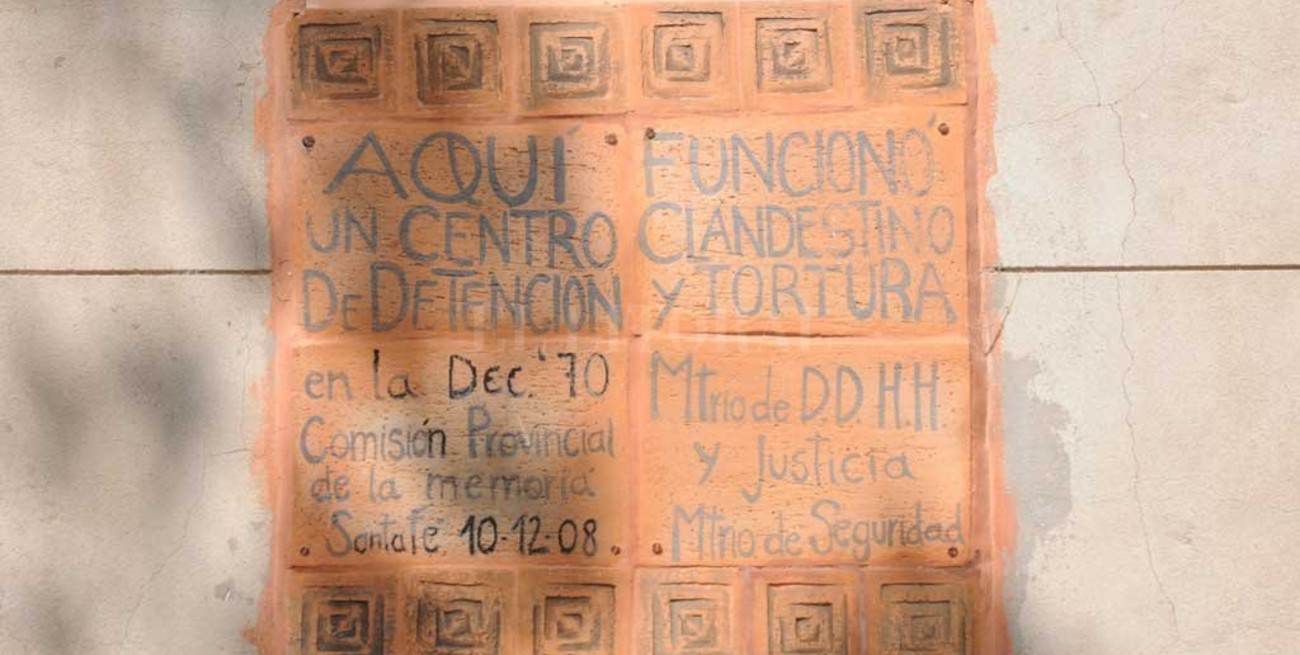 AQUÍ FUNCIONÓ
UN CENTRO CLANDESTINO
DE DETENCION y TORTURA
en la Dec. '70
Comisión Provincial
de la memoria
Santa Fe 10-12-08
Mtrio de D.D H.H.
y Justicia
Mtrio de Seguridad